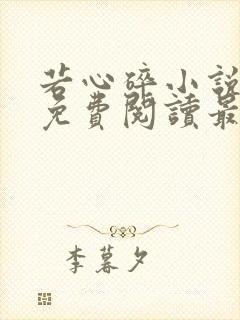 若心碎小說
免費閱讀最
李暮夕